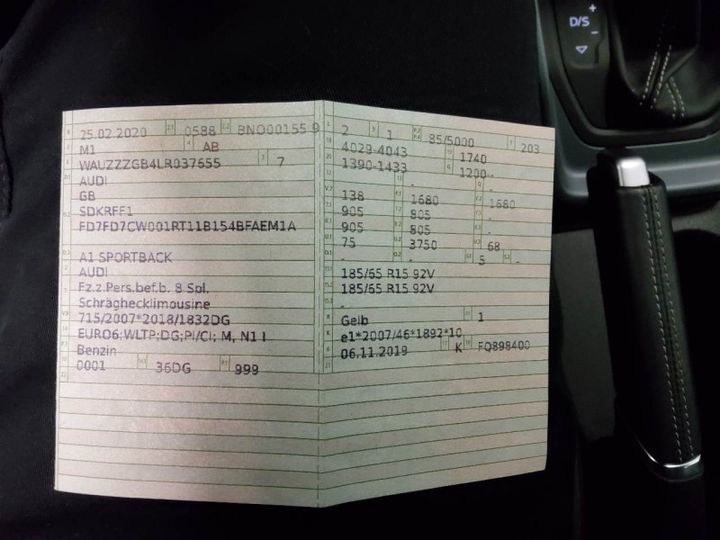 25.02.2020 0588 BNO00155 9
M1 AB
WAUZZZGB4LR037655 7
AUDI
GB
SDKRFF1
FD7FD7CW001RT11B154BFAEM1A
A1 SPORTBACK
AUDI
Fz.z.Pers.bef.b. 8 Spl.
Schräghecklimousine
715/2007*2018/1832DG
EURO6;WLTP;DG;PI/CI; M, N1 I
Benzin
0001 36DG 999
2 1 85/5000 203
4029-4043 1740
1390-1433 1200-
- -
138 1680 1680
905 805 -
905 805 -
75 3750 68
- - 5 -
185/65 R15 92V
185/65 R15 92V
-
Gelb 1
e1*2007/46*1892*10
06.11.2019 K FQ898400
+
D/S
-